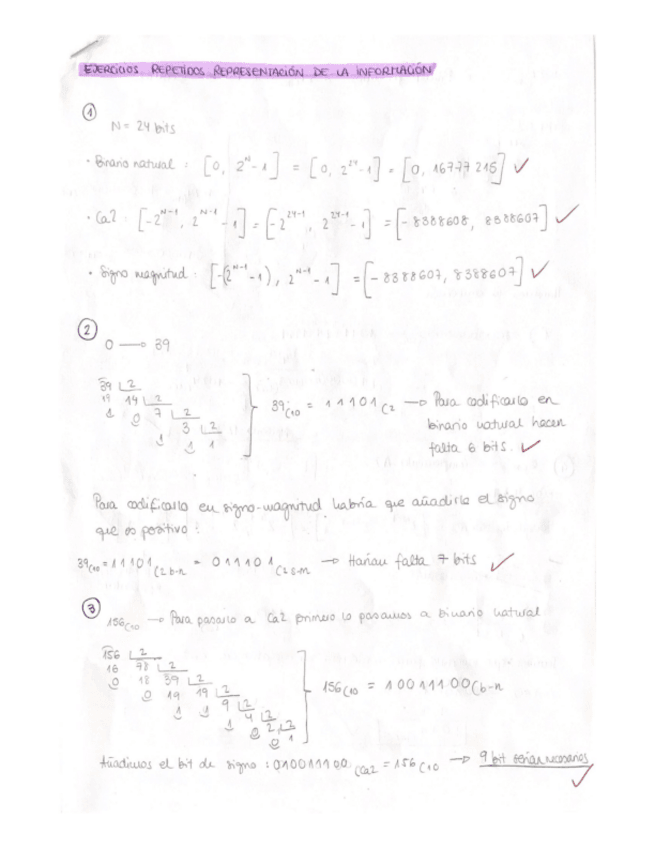 EJERCICIOS REPETIDOS REPRESENTACIÓN DE LA INFORMACIÓN
1
N = 24 bits
· Binario natural : [0, 2^N - 1] = [0, 2^24 - 1] = [0, 16777215] ✓
· Ca2 : [-2^N-1, 2^N-1 - 1] = [-2^24-1, 2^24-1 - 1] = [-8388608, 8388607] ✓
· Signo magnitud : [-(2^N-1 - 1), 2^N-1 - 1] = [-8388607, 8388607] ✓
2
0 → 39
39 2
19 14 2
1 0 7 2
1 3 2
1 1
39(10 = 11101(2 → Para codificarlo en
binario natural hacen
falta 6 bits. ✓
Para codificarlo en signo-magnitud habría que añadirle el signo
que es positivo :
39(10 = 11101(2 b-n = 011101(2 s-m → Harían falta 7 bits ✓
3
156(10 → Para pasarlo a Ca2 primero lo pasamos a binario natural
156 2
16 98 2
0 18 39 2
0 19 19 2
1 1 9 2
1 4 2
0 2 2
0 1
156(10 = 10011100(b-n
Añadimos el bit de signo : 010011100(Ca2 = 156(10 → 9 bit serían necesarios ✓